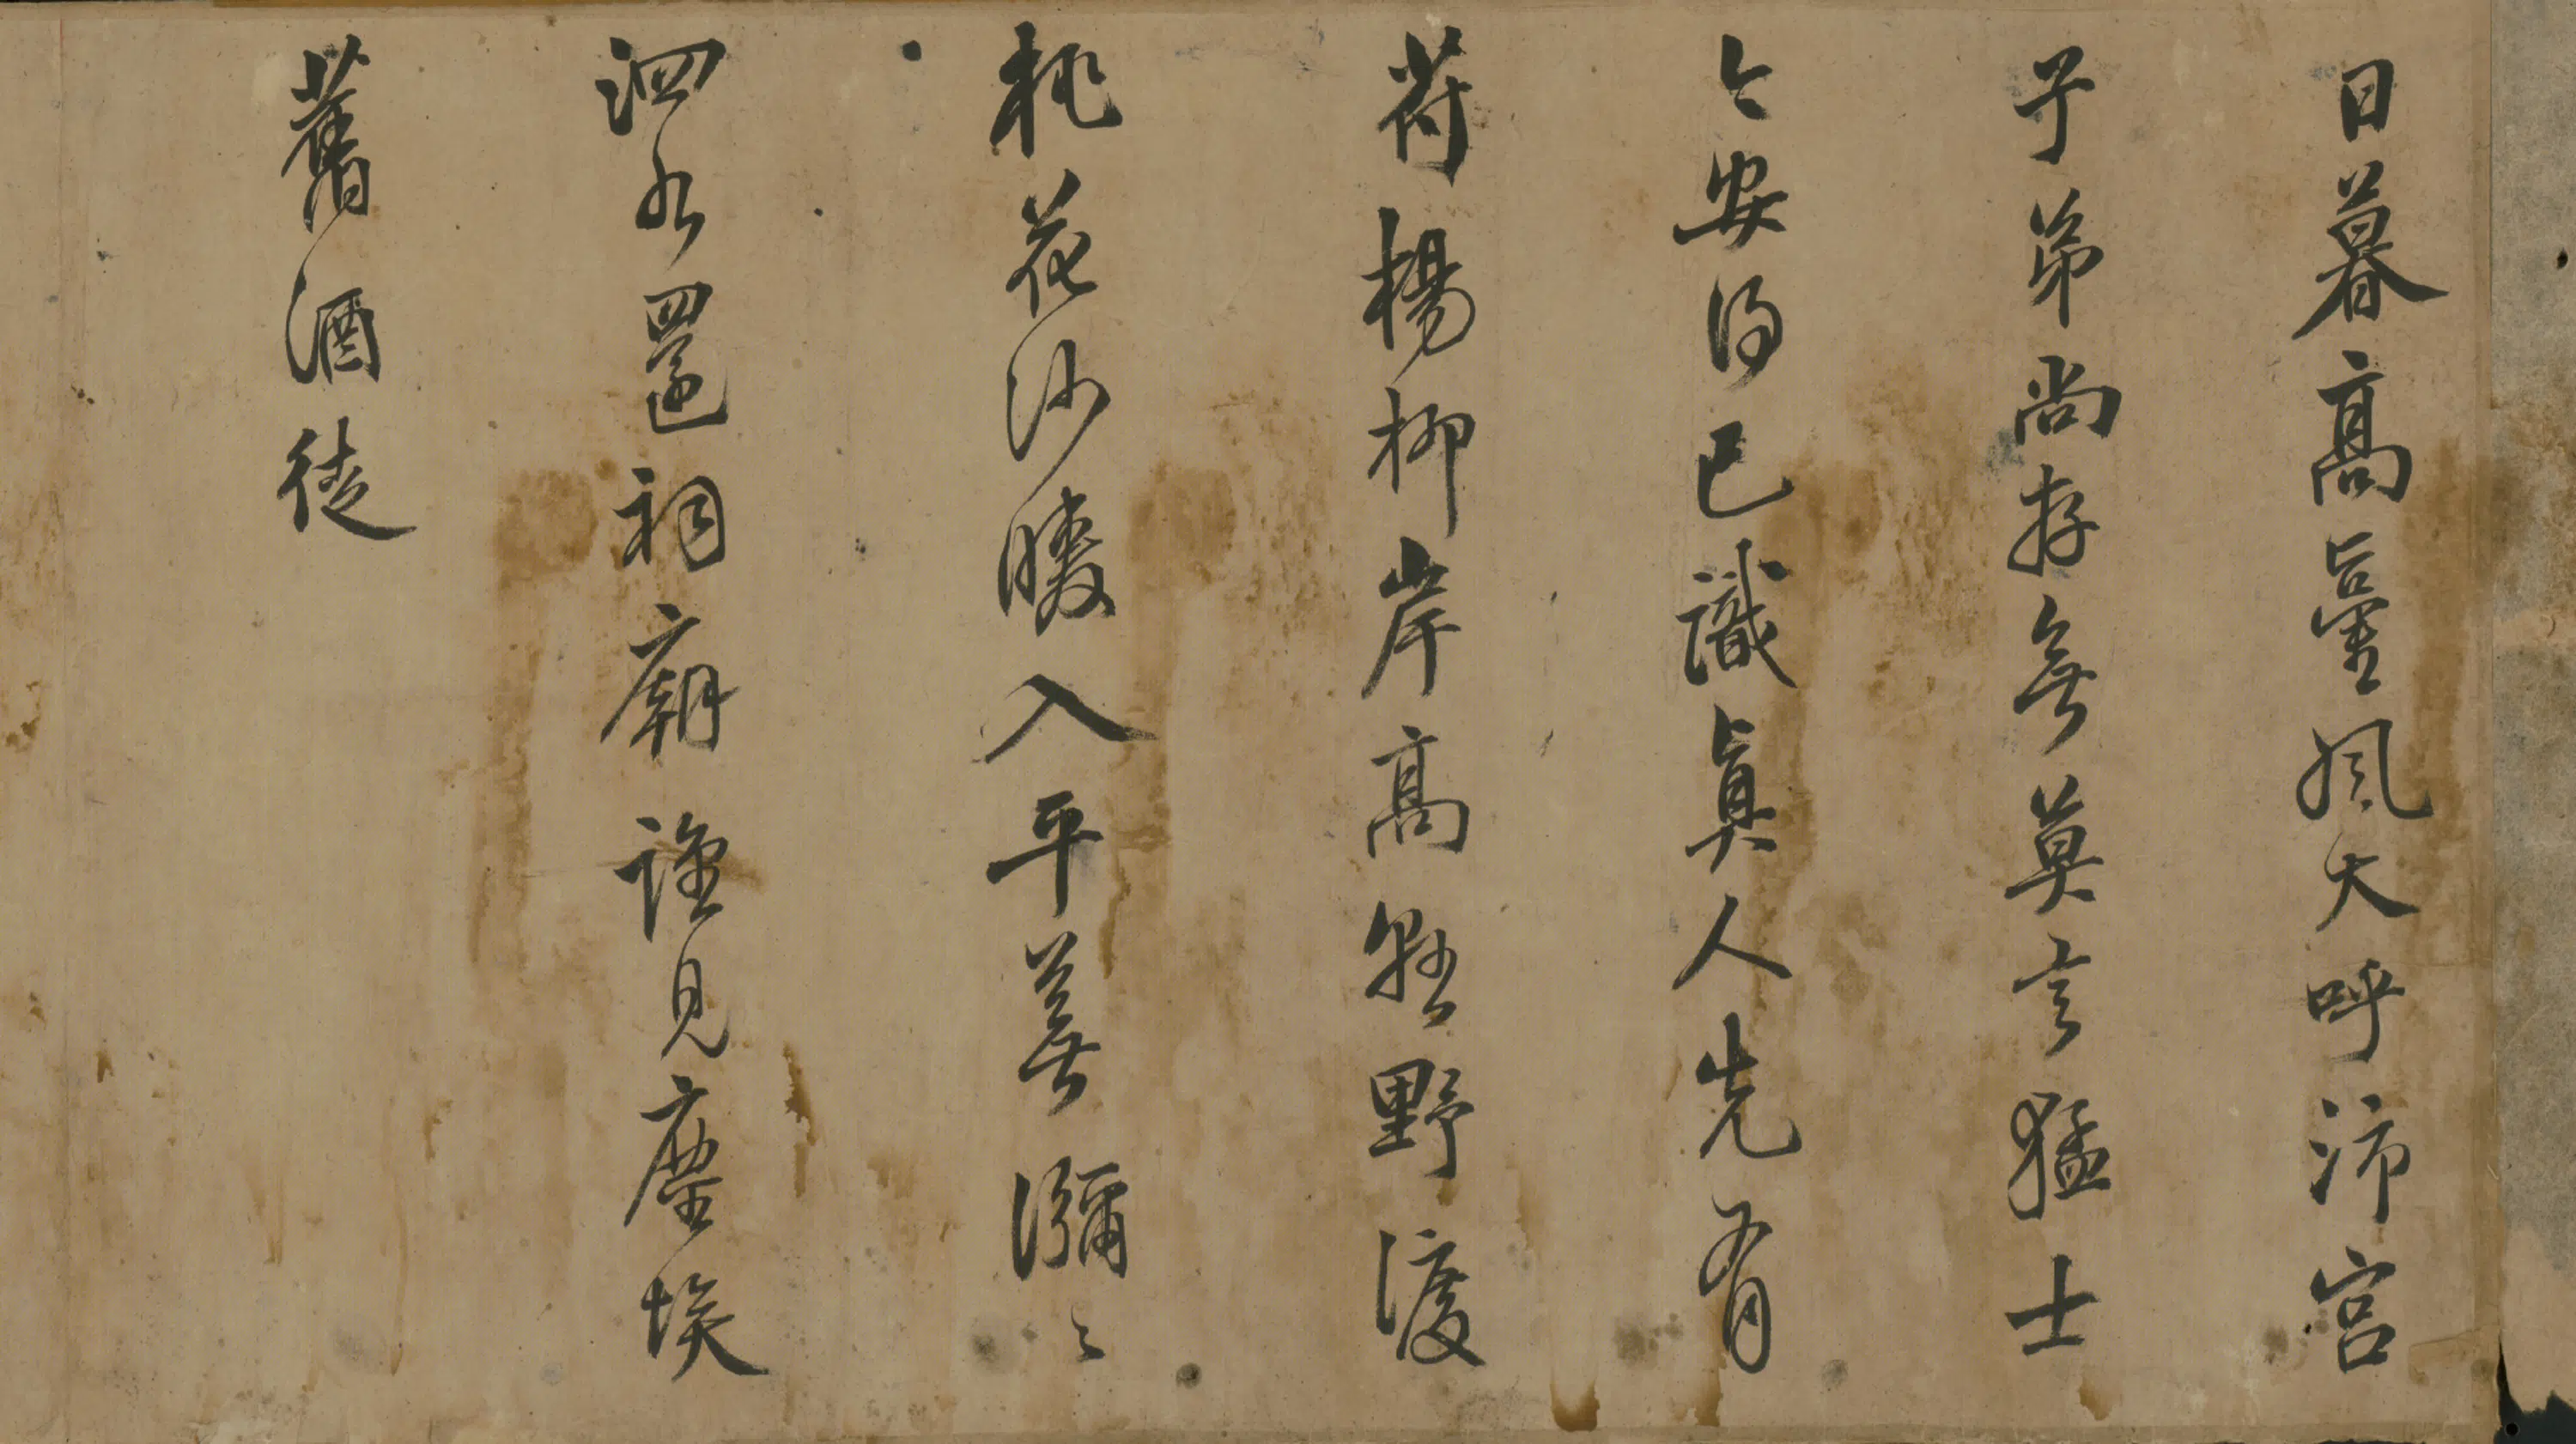 日暮高臺風大呼沛宮
子弟尚存無莫言猛士
今安得已識真人先有
符楊柳岸高野渡
桃花沙暖入平蕪瀰〻
泗水還祠廟誰見塵埃
舊酒徒